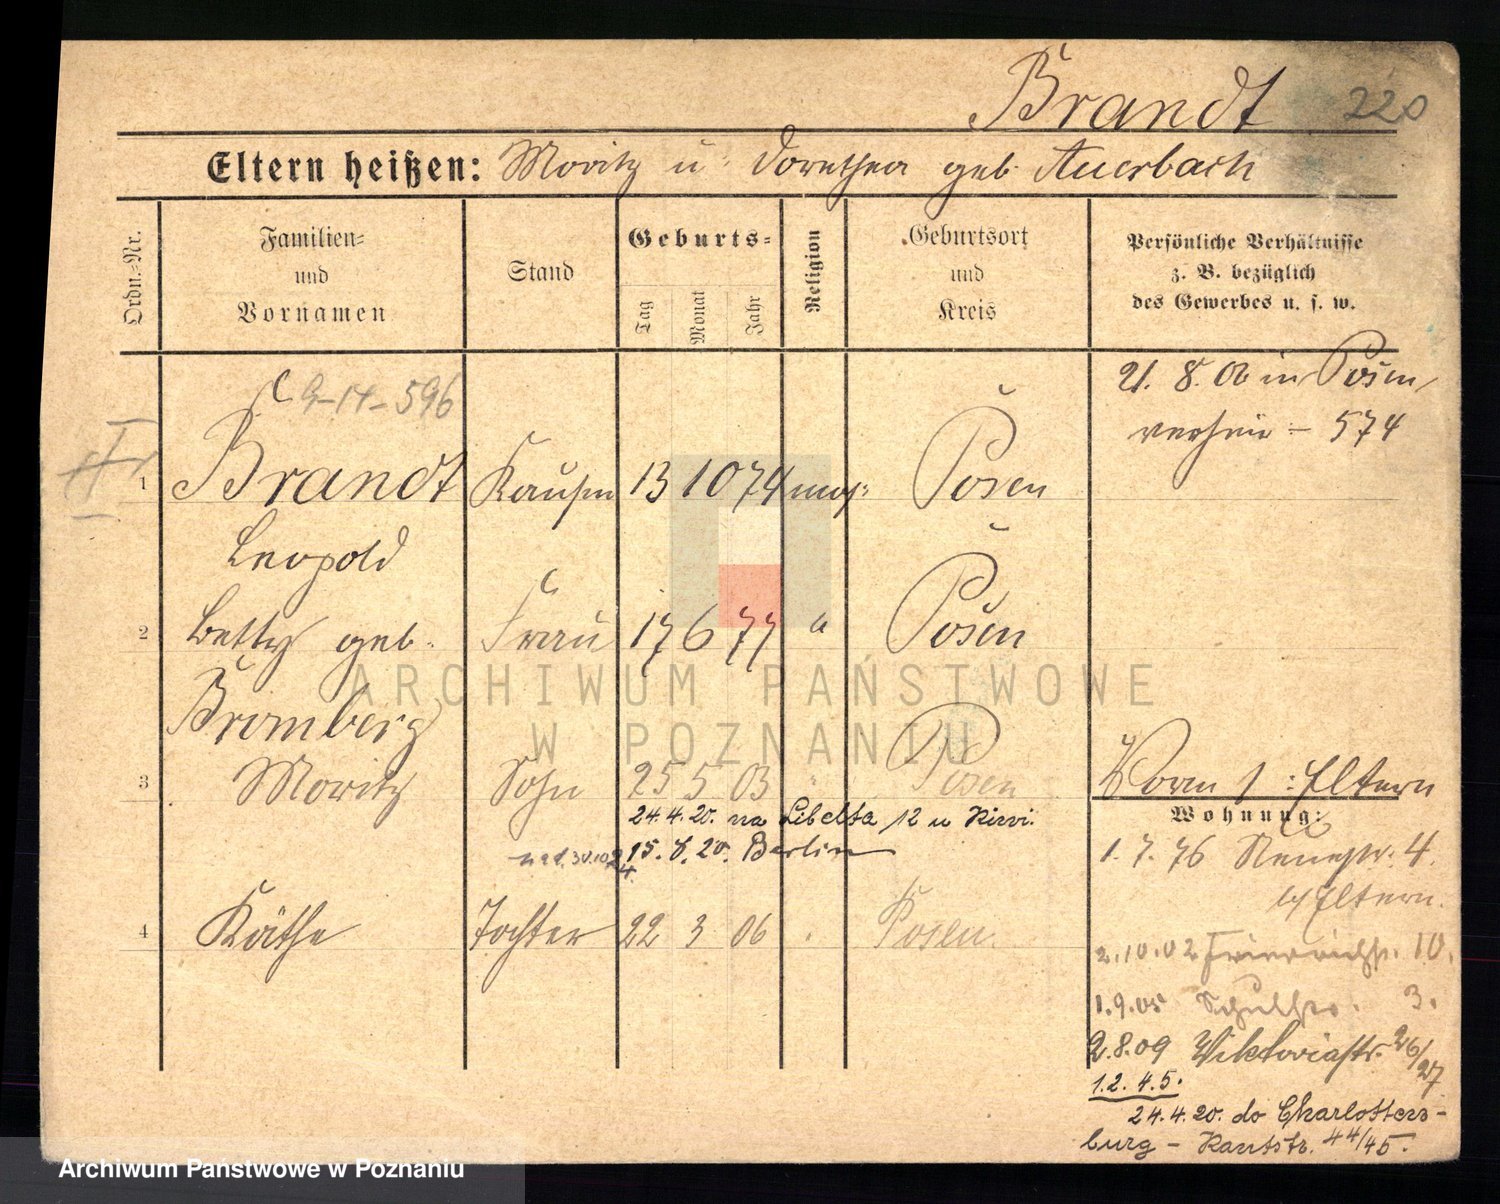 Brandt 220
Eltern heißen: Moritz u. Dorothea geb. Auerbach
Ordn.-Nr.
Familien-
und
Vornamen
Stand
Geburts-
Tag
Monat
Jahr
Religion
Geburtsort
und
Kreis
Persönliche Verhältnisse
z. B. bezüglich
des Gewerbes u. s. w.
21. 8. 06 in Posen
574
9-14-596
1 Brandt Kaufm 13 10 74 mos: Posen
Leopold
2 Betty geb. Frau 17 6 77 " Posen
Bromberg
3 Moritz Sohn 25 5 03 " Posen
24.4.20. na Libelta 12 u
15. 6. 20. Berlin
4 Käthe Tochter 22 3 06 Posen
Vorm 1: Eltern
Wohnung:
1. 7. 76 4.
b/ Eltern.
2.10.02 Friedrichstr. 10.
1.9.05 Schulstr. 3.
2.8.09 Viktoriastr. 26/27
1.2.4.5.
24.4.20. do Charlotten-
burg - Kantstr. 44/45.
ARCHIWUM PAŃSTWOWE
W POZNANIU
Archiwum Państwowe w Poznaniu